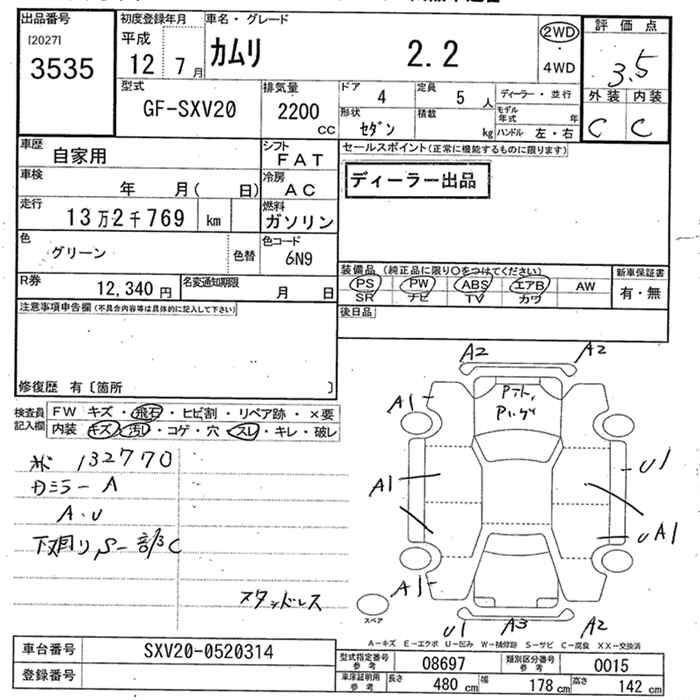 出品番号
[2027]
3535
初度登録年月
平成
12 7月
車名・グレード
カムリ 2.2
2WD
・
4WD
評価点
3.5
外装 内装
C C
型式
GF-SXV20
排気量
2200
cc
ドア 4
定員 5 人
ディーラー・並行
形状 セダン
積載 kg
モデル年式 年
ハンドル 左・右
車歴
自家用
シフト
FAT
セールスポイント(正常に機能するものに限ります)
ディーラー出品
車検
年 月( 日)
冷房
AC
走行
13万2千769 km
燃料
ガソリン
色
グリーン
色替
色コード
6N9
装備品(純正品に限り〇をつけてください)
新車保証書
PS PW ABS エアB AW
有・無
SR ナビ TV カワ
R券
12,340 円
名変通知期限
月 日
後日品
注意事項申告欄(不具合内容等は具体的に記入して下さい)
修復歴 有〔箇所 〕
検査員記入欄
FW キズ・飛石・ヒビ割・リペア跡・×要
内装 キズ・汚レ・コゲ・穴・スレ・キレ・破レ
132770
カミラー A
A・U
下回り S-部サC
スタッドレス
A2 A2
A1
A1 U1
A1 UA1
A1
U1 A3 A2
スペア
A-キズ E-エクボ U-凹み W-補修跡 S-サビ C-腐食 XX-交換済
車台番号 SXV20-0520314
登録番号
型式指定番号 参考 08697
類別区分番号 参考 0015
車庫証明用 参考
長さ 480 cm
幅 178 cm
高さ 142 cm